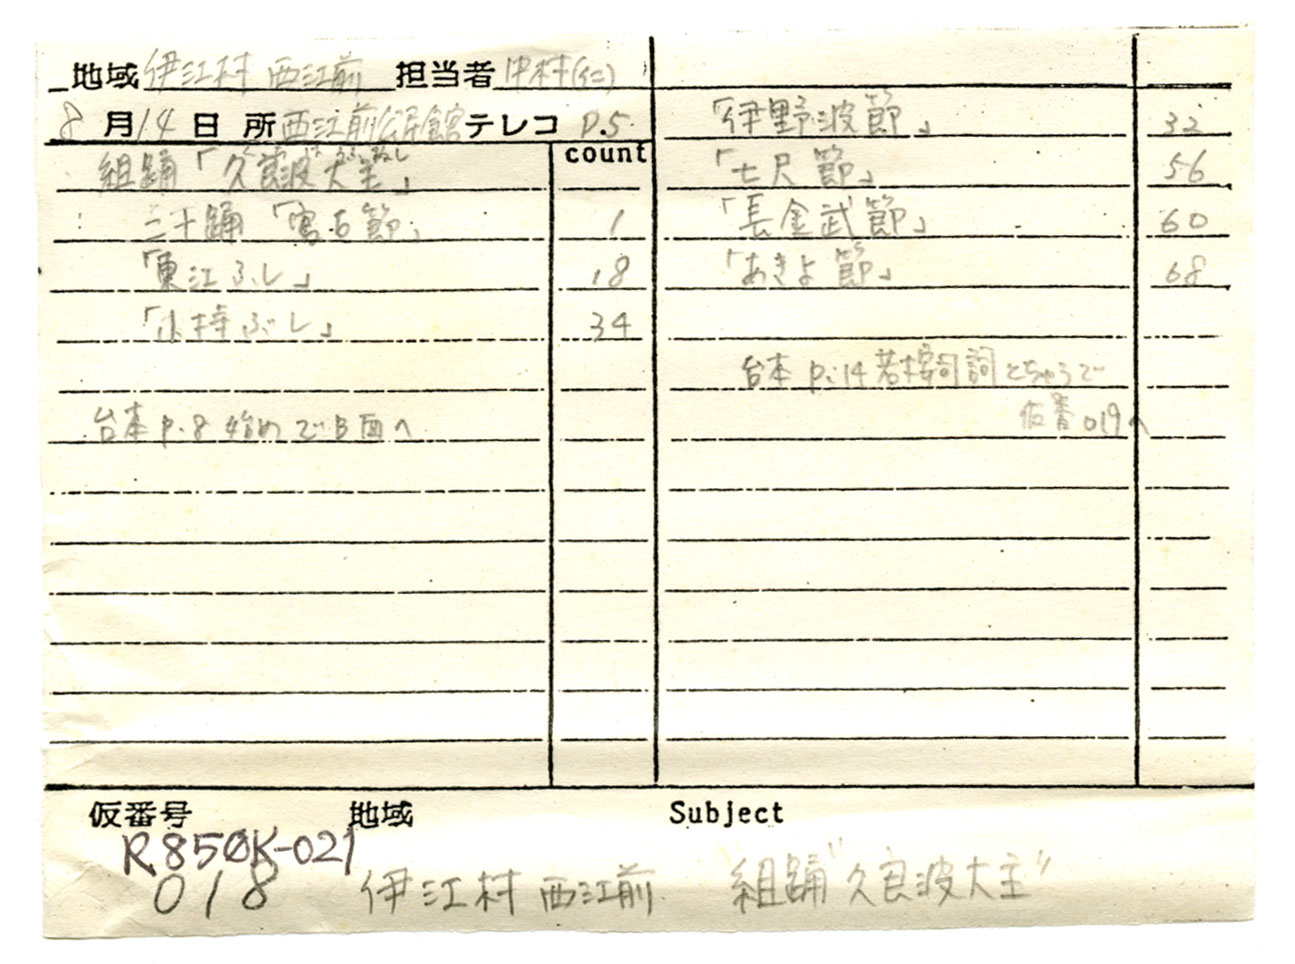 地域 伊江村 西江前 担当者 中村(仁)
8月14日 所 西江前公民館 テレコ P.5
count
組踊「久良波大主」
二才踊「宮古節」 1
「東江ぶし」 18
「小持ぶし」 34
台本 P.8 始めでB面へ
「伊野波節」 32
「七尺節」 56
「長金武節」 60
「あきよ節」 68
台本 P.14 若按司詞 とちゅうで
仮番 019へ
仮番号 地域 Subject
R850K-021
018 伊江村 西江前 組踊"久良波大主"